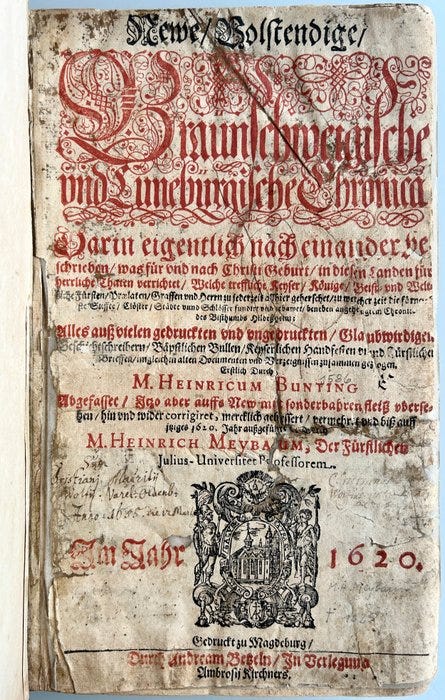 Newe/ Volstendige/
Braunschweigische
und Lüneburgische Chronica
Darin eigentlich nach einander be-
schrieben/ was für und nach Christi Geburt/ in diesen Landen für
herrliche Thaten verrichtet/ Welche treffliche Keyser/ Könige/ Geist- und Welt-
liche Fürsten/ Prælaten/ Graffen und Herrn zu jederzeit alhier geherschet/ zu welcher zeit die fürnem-
ste Stiffte/ Clöster/ Städte und Schlösser fundirt und erbawet/ beneben angehengtem Chronico
des Bisthumbs Hildesheim;
Alles auß vielen gedruckten und ungedruckten/ Glaubwirdigen
Geschichtschreibern/ Bäpstlichen Bullen/ Keyserlichen Handfesten und Fürstlichen
Brieffen/ imgleichen alten Documenten und Verzeignussen zusammen gezogen,
Erstlich Durch
M. HEINRICUM BUNTING
1586
Abgefasset/ Itzo aber auffs New mit sonderbahren fleiß uberse-
hen/ hin und wider corrigiret, mercklich gebessert/ vermehrt und biß auff
itziges 1620. Jahr außgeführt durch
M. HEINRICH MEYBAUM, Der Fürstlichen
Julius-Universitet Professorem.
Anno 1685
Im Jahr 1620.
Gedruckt zu Magdeburg/
Durch Andream Betzeln/ In Verlegung
Ambrosij Kirchners.